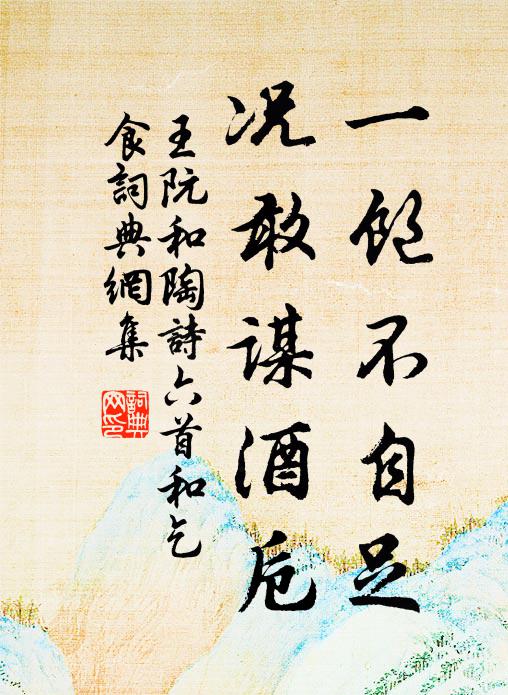 一飽不自足
況敢謀酒卮
王阮和陶詩六首和乞
食詞典網集
詞典網印